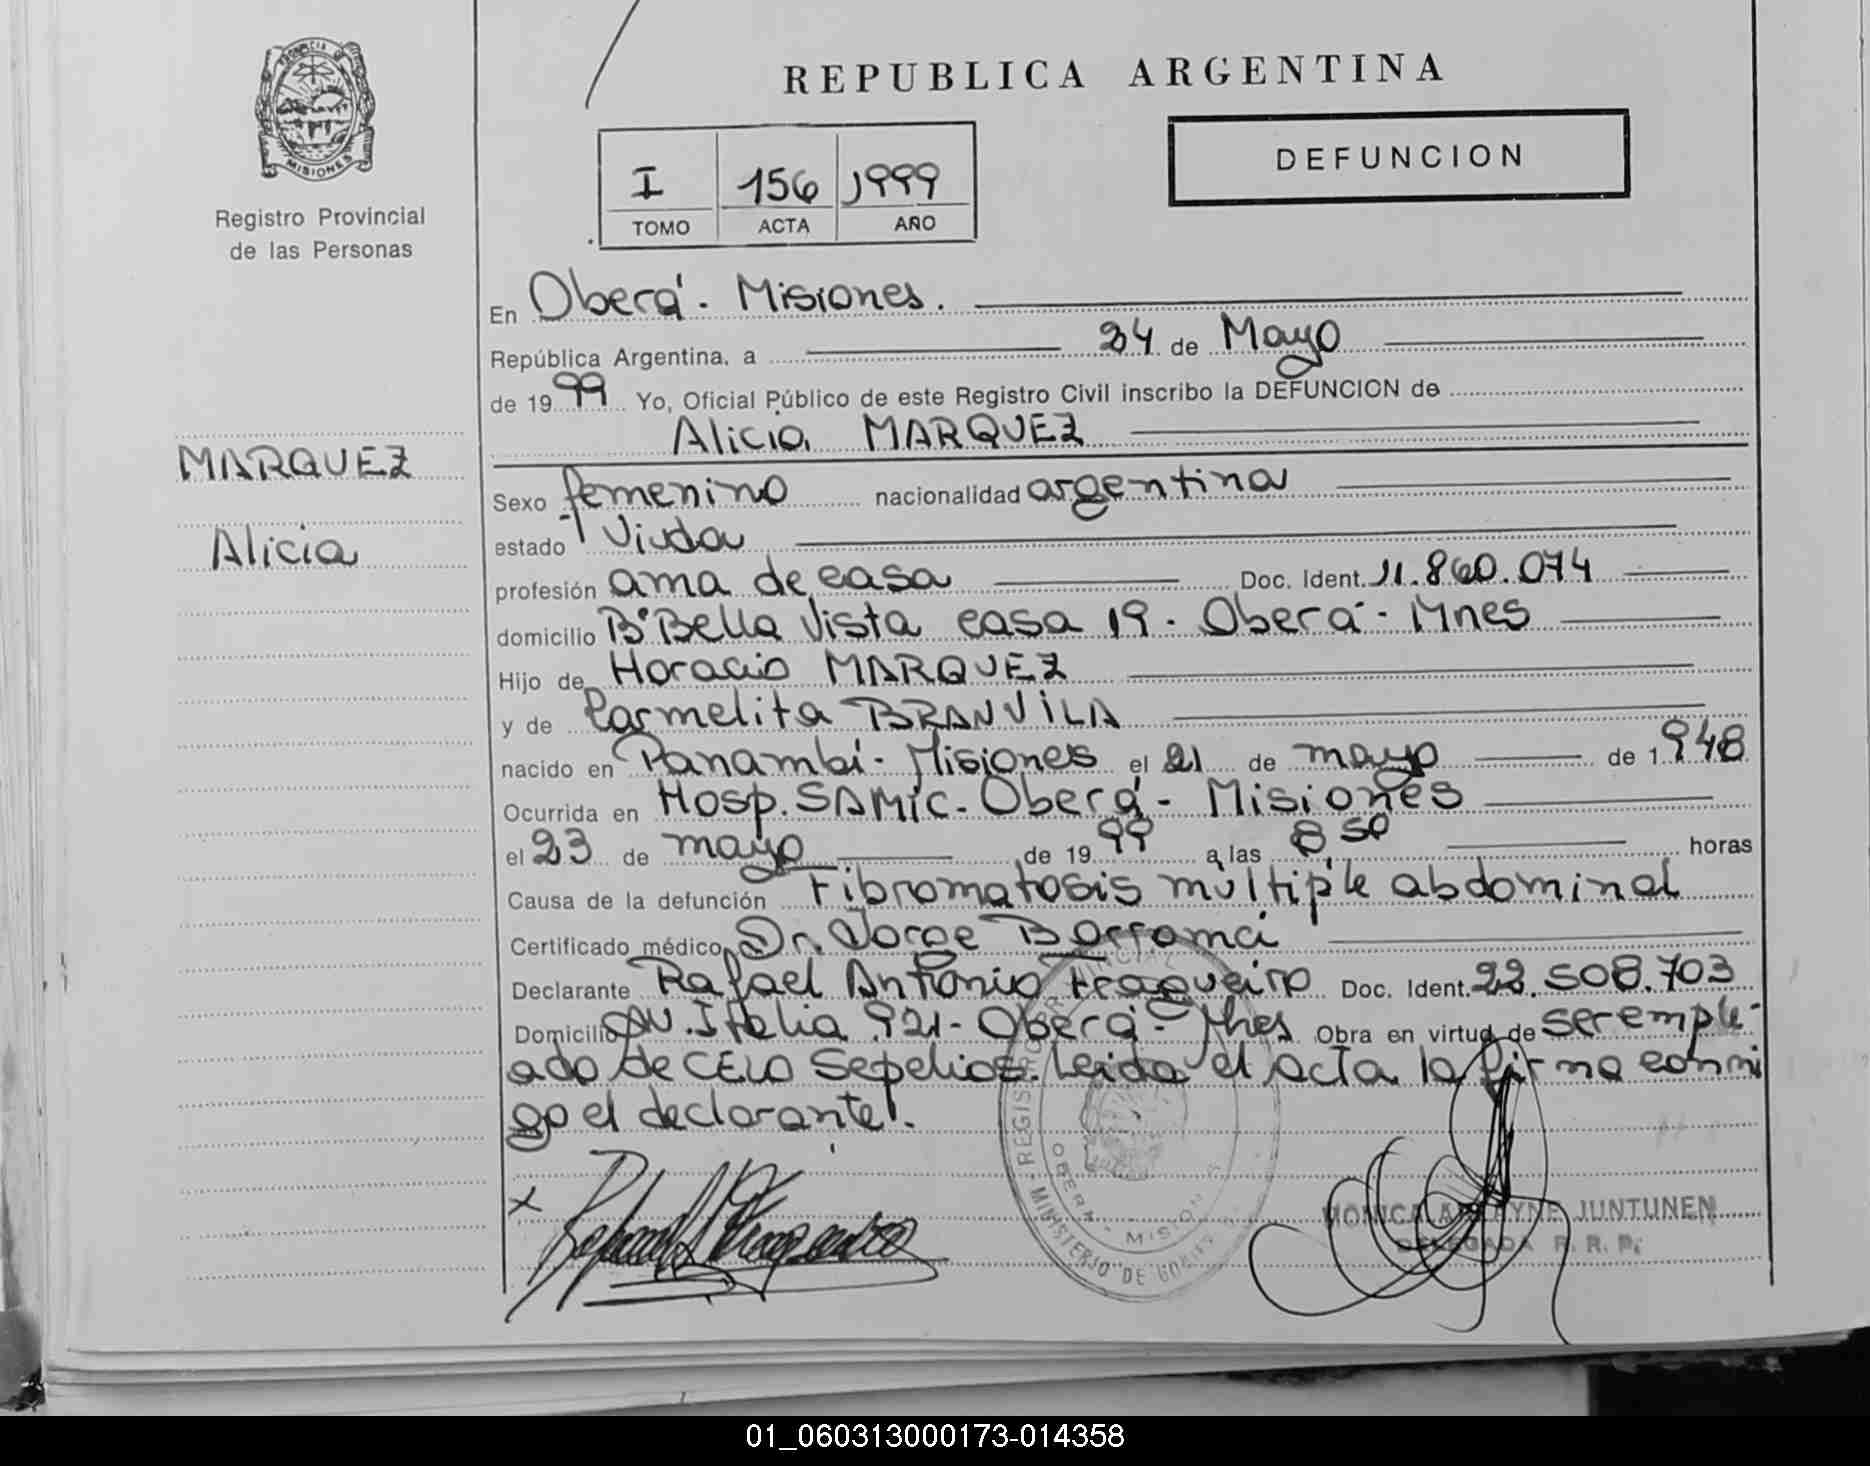 PROVINCIA DE
MISIONES
Registro Provincial
de las Personas
MARQUEZ
Alicia
REPUBLICA ARGENTINA
I 156 1999
TOMO ACTA AÑO
DEFUNCION
En Oberá - Misiones.
República Argentina, a 24 de Mayo
de 1999 Yo, Oficial Público de este Registro Civil inscribo la DEFUNCION de
Alicia MARQUEZ
Sexo femenino nacionalidad argentina
estado Viuda
profesión ama de casa Doc. Ident. 11.860.074
domicilio B° Bella Vista casa 19 - Oberá - Mnes
Hijo de Horacio MARQUEZ
y de Carmelita BRANVILA
nacido en Panambí - Misiones el 21 de mayo de 1948
Ocurrida en Hosp. SAMIC - Oberá - Misiones
el 23 de mayo de 1999 a las 8 50 horas
Causa de la defunción Fibromatosis múltiple abdominal
Certificado médico Dr. Jorge
Declarante Rafael Antonio Fragueiro Doc. Ident. 22.508.703
Domicilio AV. Italia 921 - Oberá - Mnes Obra en virtud de ser emple-
ado de CELO Sepelios. Leida el acta la firma conmi
go el declarante.
MONICA JUNTUNEN
DELEGADA R. R. P.
REGISTRO PROVINCIAL
OBERA - MISIONES
MINISTERIO DE GOBIERNO
01_060313000173-014358